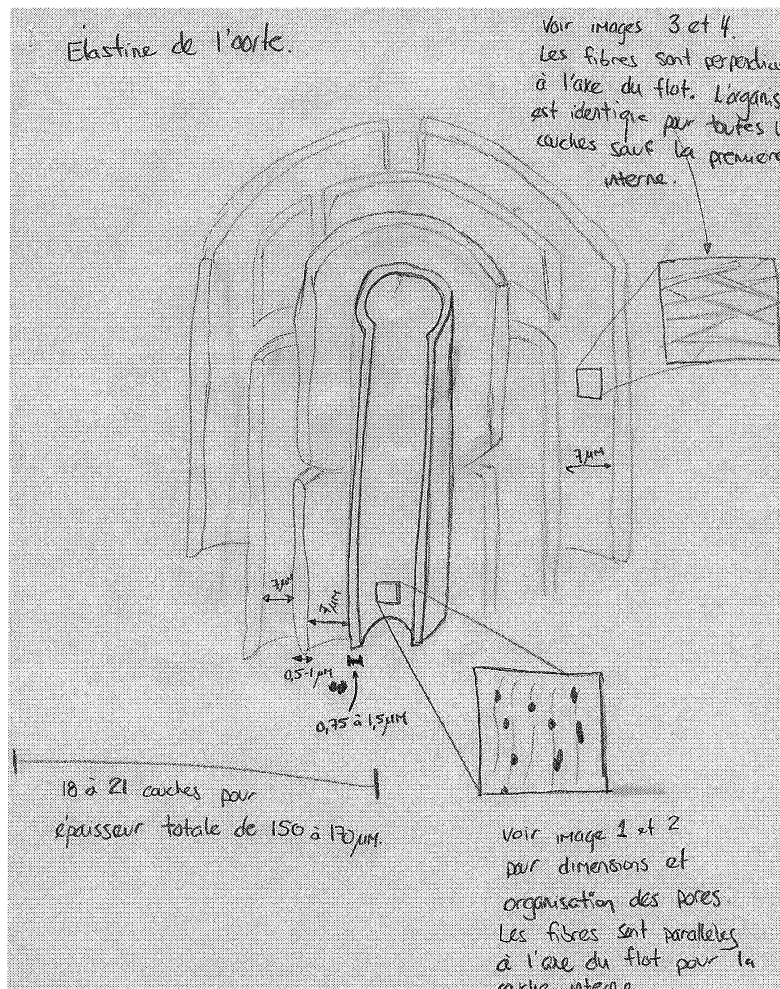 Elastine de l'aorte.
Voir images 3 et 4.
Les fibres sont perpendicu
à l'axe du flot. L'organis
est identique pour toutes l
couches sauf la première
interne.
7µm
7µm
7µm
0,5-1µm
0,75 à 1,5µm
18 à 21 couches pour
épaisseur totale de 150 à 170µm.
Voir image 1 et 2
pour dimensions et
organisation des pores.
Les fibres sont parallèles
à l'axe du flot pour la
couche interne